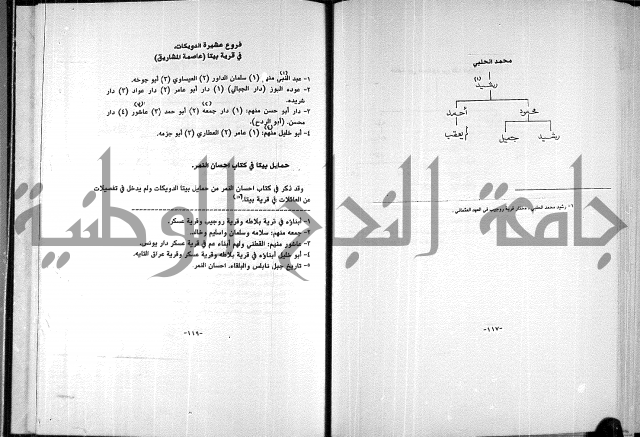 محمد الحلبي
رشيد (١)
محمود أحمد
رشيد جميل يعقب
١- رشيد محمد الحلبي: مختار قرية روجيب في العهد العثماني.
-١١٧-
فروع عشيرة الدويكات.
في قرية بيتا (عاصمة المشاريق)
١- عبد النبي منهم (١) سلمان الداور (٢) العيساوي (٣) أبو جوخه.
٢- عوده البوز (دار الجبالي) (١) دار أبو عامر (٢) دار عواد (٣) دار
شريده.
٣- دار أبو حسن منهم: (١) دار جمعه (٢) أبو حمد (٣) عاشور (٤) دار
محسن. (أبو الردح).
٤- أبو خليل منهم: (١) عامر (٢) العطاري (٣) أبو جزمه.
حمايل بيتا في كتاب احسان النمر.
وقد ذكر في كتاب احسان النمر من حمايل بيتا الدويكات ولم يدخل في تفصيلات
عن العائلات في قرية بيتا.
١- أبناؤه في قرية بلاطه وقرية روجيب وقرية عسكر.
٢- جمعه منهم: سلامه وسلمان واسليم وخالد.
٣- عاشور منهم: القطني ولهم أبناء عم في قرية عسكر دار يونس.
٤- أبو خليل أبناؤه في قرية بلاطه وقرية عسكر وقرية عراق التايه.
٥- تاريخ جبل نابلس والبلقاء. احسان النمر.
-١١٩-
جامعة النجاح الوطنية